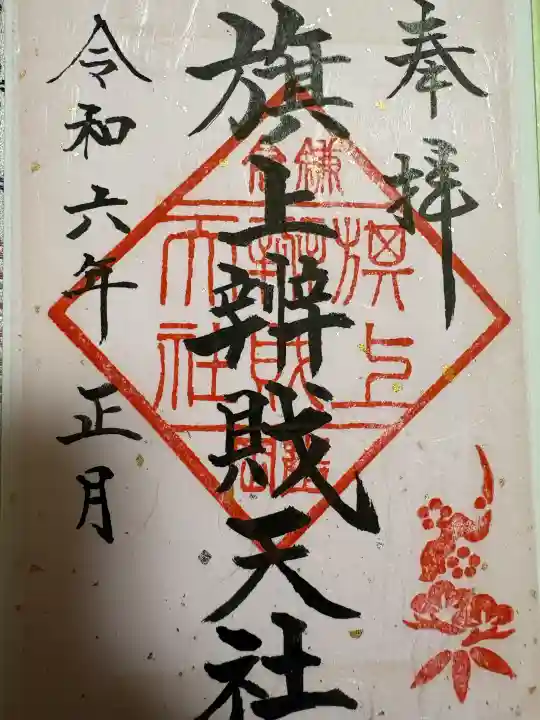 奉拝
旗上辨財天社
令和六年正月
鎌倉
旗上
天社